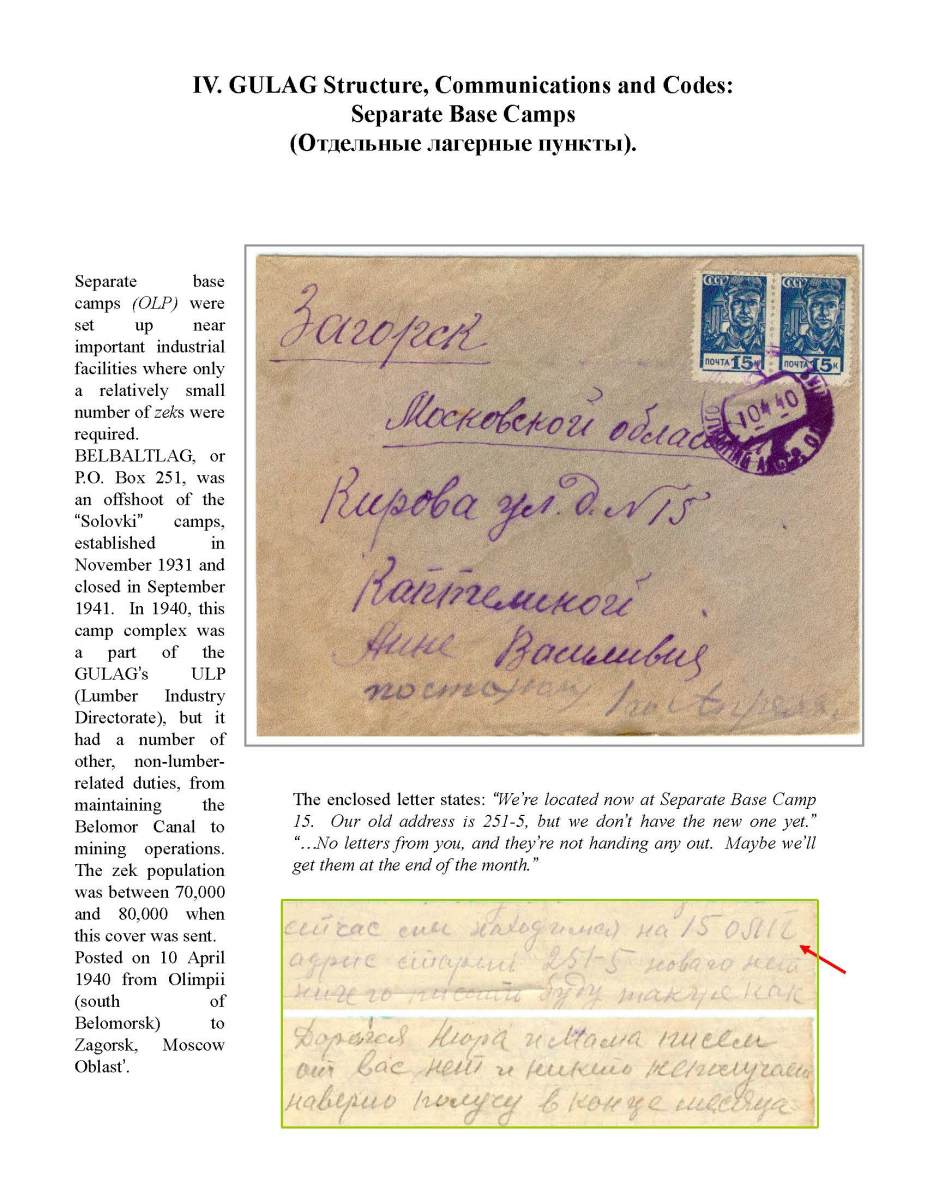 IV. GULAG Structure, Communications and Codes:
Separate Base Camps
(Отдельные лагерные пункты).
Separate base
camps (OLP) were
set up near
important industrial
facilities where only
a relatively small
number of zeks were
required.
BELBALTLAG, or
P.O. Box 251, was
an offshoot of the
“Solovki” camps,
established in
November 1931 and
closed in September
1941. In 1940, this
camp complex was
a part of the
GULAG’s ULP
(Lumber Industry
Directorate), but it
had a number of
other, non-lumber-
related duties, from
maintaining the
Belomor Canal to
mining operations.
The zek population
was between 70,000
and 80,000 when
this cover was sent.
Posted on 10 April
1940 from Olimpii
(south of
Belomorsk) to
Zagorsk, Moscow
Oblast’.
СССР СССР
ПОЧТА 15К ПОЧТА 15К
10 4 40
Загорск
Московской
Кирова ул. д. N 15
Анне Василивне
1го Апреля
The enclosed letter states: “We’re located now at Separate Base Camp
15. Our old address is 251-5, but we don’t have the new one yet.”
“…No letters from you, and they’re not handing any out. Maybe we’ll
get them at the end of the month.”
сейчас мы находимся на 15 ОЛП
адрис старый 251-5 новаго нет
ничего писать буду так уж как
Дорогая Нюра и Мама писем
от вас нет и никто неполучает
наверно получу в конце месяца